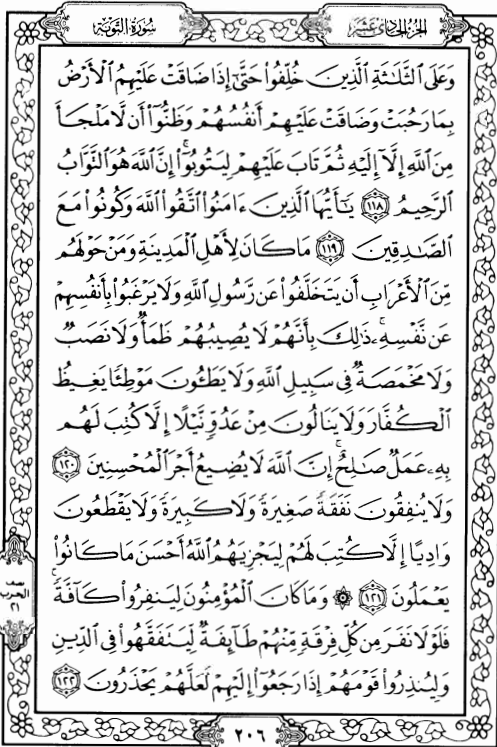 الجزء الحادى عشر
سورة التوبة
وَعَلَى ٱلثَّلَٰثَةِ ٱلَّذِينَ خُلِّفُوا۟ حَتَّىٰٓ إِذَا ضَاقَتْ عَلَيْهِمُ ٱلْأَرْضُ
بِمَا رَحُبَتْ وَضَاقَتْ عَلَيْهِمْ أَنفُسُهُمْ وَظَنُّوٓا۟ أَن لَّا مَلْجَأَ
مِنَ ٱللَّهِ إِلَّآ إِلَيْهِ ثُمَّ تَابَ عَلَيْهِمْ لِيَتُوبُوٓا۟ۚ إِنَّ ٱللَّهَ هُوَ ٱلتَّوَّابُ
ٱلرَّحِيمُ ١١٨ يَٰٓأَيُّهَا ٱلَّذِينَ ءَامَنُوا۟ ٱتَّقُوا۟ ٱللَّهَ وَكُونُوا۟ مَعَ
ٱلصَّٰدِقِينَ ١١٩ مَا كَانَ لِأَهْلِ ٱلْمَدِينَةِ وَمَنْ حَوْلَهُم
مِّنَ ٱلْأَعْرَابِ أَن يَتَخَلَّفُوا۟ عَن رَّسُولِ ٱللَّهِ وَلَا يَرْغَبُوا۟ بِأَنفُسِهِمْ
عَن نَّفْسِهِۦۚ ذَٰلِكَ بِأَنَّهُمْ لَا يُصِيبُهُمْ ظَمَأٌ وَلَا نَصَبٌ
وَلَا مَخْمَصَةٌ فِى سَبِيلِ ٱللَّهِ وَلَا يَطَـُٔونَ مَوْطِئًا يَغِيظُ
ٱلْكُفَّارَ وَلَا يَنَالُونَ مِنْ عَدُوٍّ نَّيْلًا إِلَّا كُتِبَ لَهُم
بِهِۦ عَمَلٌ صَٰلِحٌۚ إِنَّ ٱللَّهَ لَا يُضِيعُ أَجْرَ ٱلْمُحْسِنِينَ ١٢٠
وَلَا يُنفِقُونَ نَفَقَةً صَغِيرَةً وَلَا كَبِيرَةً وَلَا يَقْطَعُونَ
وَادِيًا إِلَّا كُتِبَ لَهُمْ لِيَجْزِيَهُمُ ٱللَّهُ أَحْسَنَ مَا كَانُوا۟
يَعْمَلُونَ ١٢١ ۞ وَمَا كَانَ ٱلْمُؤْمِنُونَ لِيَنفِرُوا۟ كَآفَّةًۚ
فَلَوْلَا نَفَرَ مِن كُلِّ فِرْقَةٍ مِّنْهُمْ طَآئِفَةٌ لِّيَتَفَقَّهُوا۟ فِى ٱلدِّينِ
وَلِيُنذِرُوا۟ قَوْمَهُمْ إِذَا رَجَعُوٓا۟ إِلَيْهِمْ لَعَلَّهُمْ يَحْذَرُونَ ١٢٢
نصف
الحزب
٢١
٢٠٦